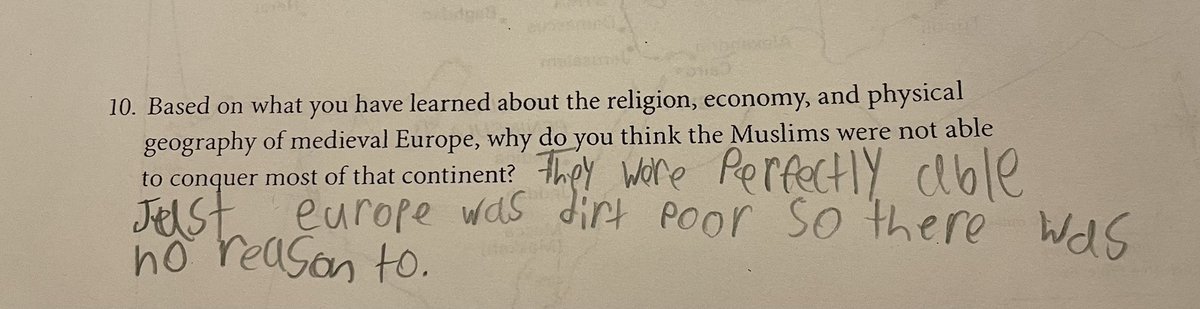 10. Based on what you have learned about the religion, economy, and physical
geography of medieval Europe, why do you think the Muslims were not able
to conquer most of that continent? They were Perfectly able
Just europe was dirt poor so there was
no reason to.